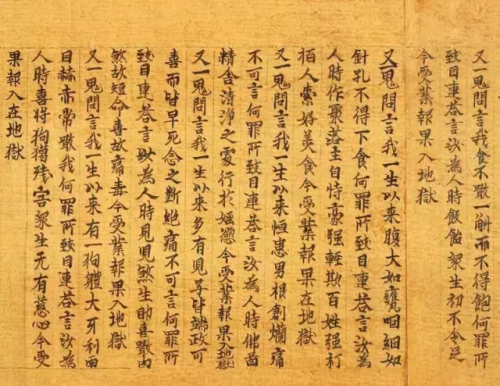 又一鬼問言我食不噉一斛而不得飽何罪所
致目連荅言汝為人時飯餓衆生初不令足
今受業報果入地獄
又鬼問言我一生以來腹大如甕咽細如
針孔不得下食何罪所致目連荅言汝為
人時作聚落主自恃豪強輕欺百姓強打
拍人索好美食今受業報果在地獄
又一鬼問言我一生以來恒患男根創爛痛
不可言何罪所致目連荅言汝為人時佛啚
精舍清淨之處行於婬慾今受業報果入地獄
又一鬼問言我一生以來多有兒子皆端政可
喜而皆早死念之斷絕痛不可言何罪所
致目連荅言汝為人時見兒煞生助喜噉肉
煞故短命喜故痛毒今受業報果入地獄
又一鬼問言我一生以來有一狗軆大牙利兩
目赫赤常噉我何罪所致目連荅言汝為
人時喜將狗獵殘害衆生无有慈心今受
果報入在地獄